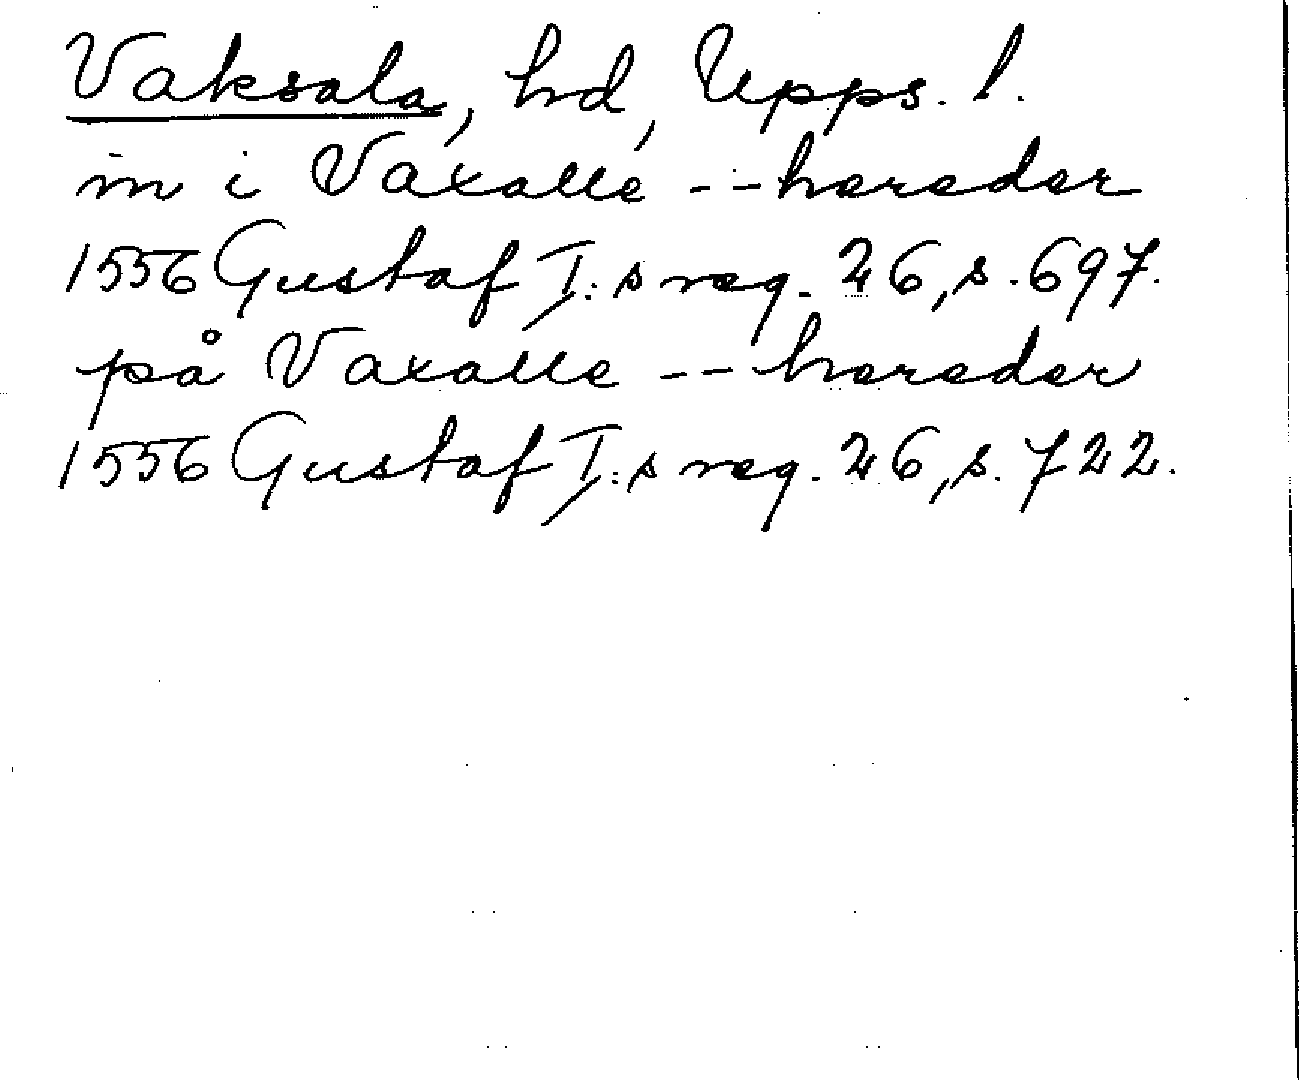 Vaksala, hd, Upps. l.
in i Vaxalle -- hereder
1556 Gustaf I:s reg. 26, s. 697.
på Vaxalle -- hereder
1556 Gustaf I:s reg. 26, s. 722.